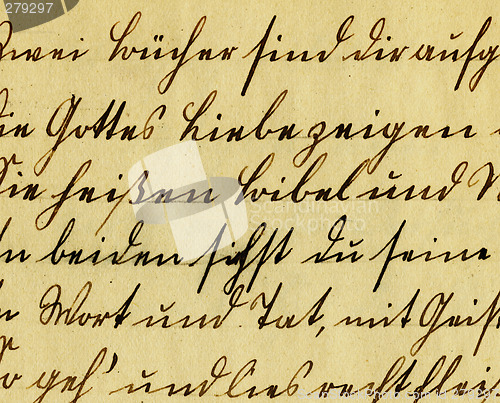 279297
Zwei Bücher sind dir aufg
die Gottes Liebe zeigen
Sie heißen Bibel und N
In beiden siehst du seine
In Wort und Tat, mit Geist
So geh' und lies recht flei